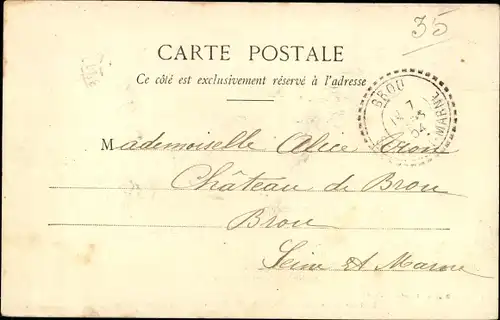 35
CARTE POSTALE
Ce côté est exclusivement réservé à l'adresse
BROU
7
04
-MARNE
Mademoiselle Alice
Château de Brou
Brou
Seine et Marne